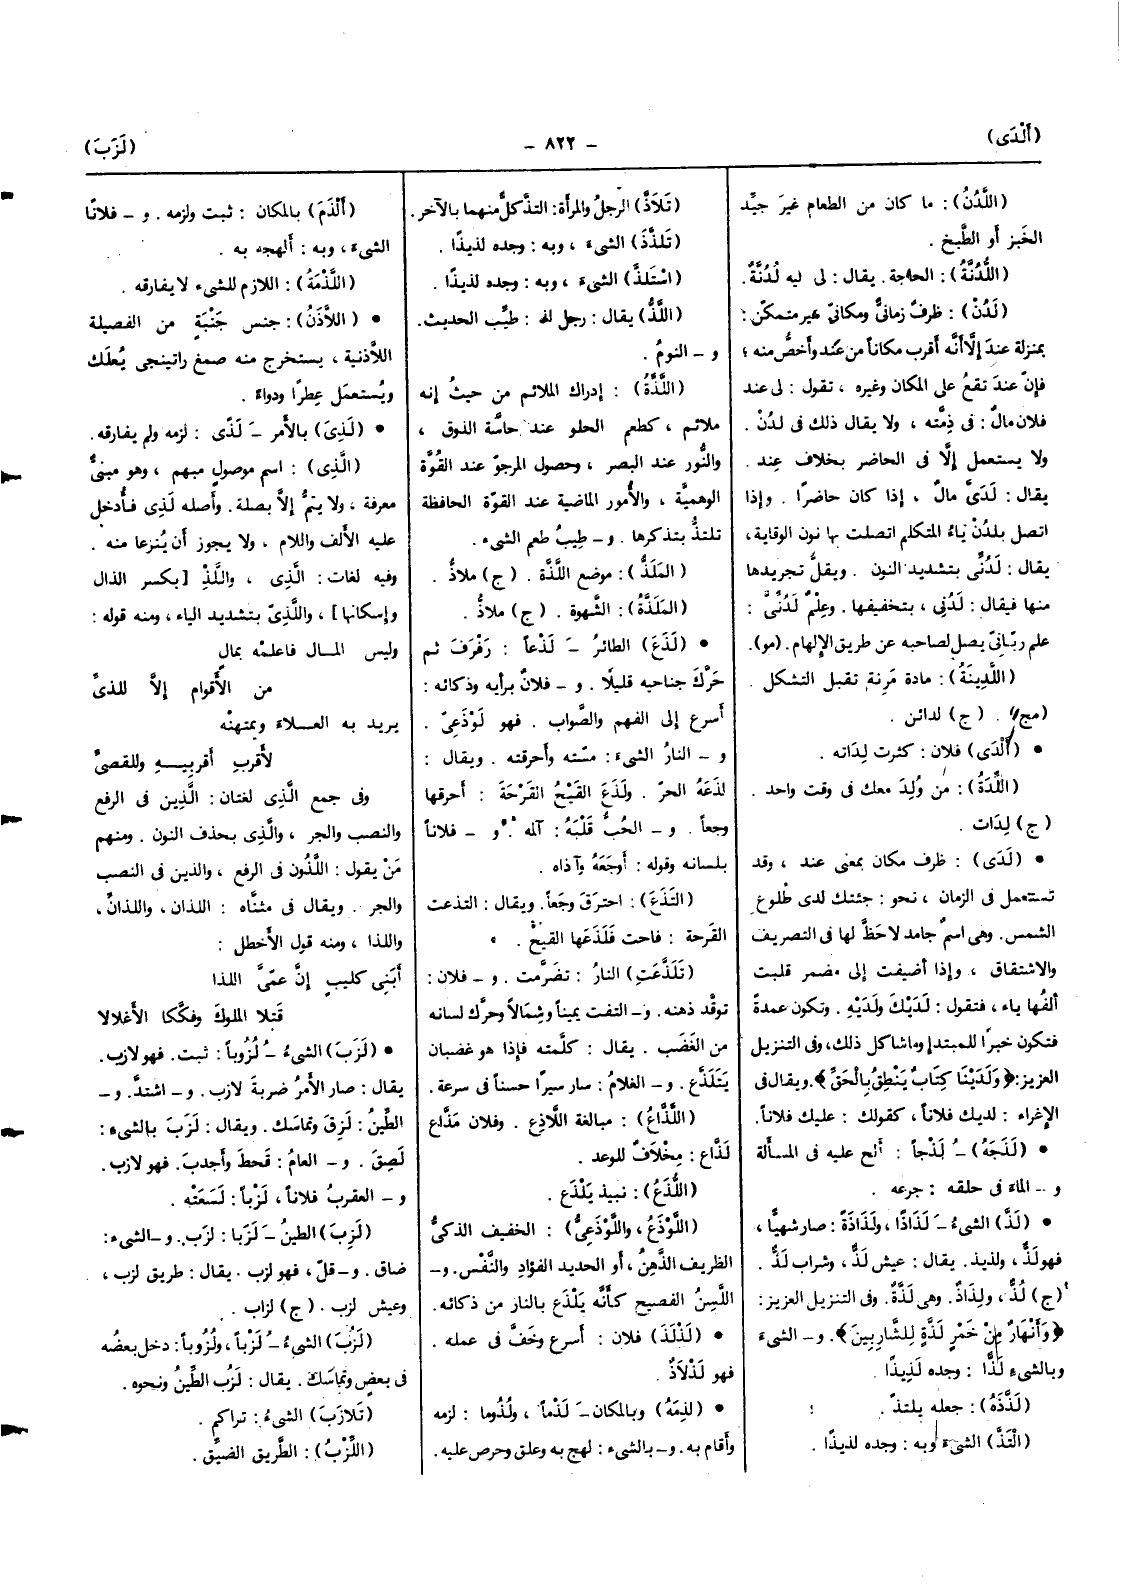 (أَلْدَى)
– ٨٢٢ –
(لَزَبَ)
(اللَّدُنُ): ما كان من الطعام غيرَ جيِّد
الخَبز أَو الطَّبخ .
(اللُّدُنَّةُ): الحاجة. يقال: لى فيه لُدُنَّةٌ.
(لَدُنْ): ظرفٌ زمانىٌّ ومكانىّ غير متمكّن:
بمنزلة عندَ إِلاَّ أَنَّه أَقرب مكاناً من عند وأَخصُّ منه ؛
فإِنّ عندَ تقعُ على المكان وغيره ، تقول : لى عند
فلان مالٌ: فى ذِمَّته ، ولا يقال ذلك فى لدُنْ .
ولا يستعمل إِلَّا فى الحاضر بخلاف عِند .
يقال: لَدَىَّ مالٌ ، إِذا كان حاضرًا . وإِذا
اتصل بلدُنْ ياءُ المتكلم اتصلت بها نون الوقاية،
يقال: لَدُنِّى بتشديد النون . ويقلُّ تجريدها
منها فيقال: لَدُنِى ، بتخفيفها. وعِلْمٌ لَدُنِّىٌّ :
علم ربّانىّ يصل لصاحبه عن طريق الإِلهام. (مو).
(اللَّدِينَةُ): مادة مَرِنة تقبل التشكل .
(مج) . (ج) لدائن .
• (أَلْدَى) فلان: كثرت لِدَاته .
(اللِّدَةُ): مَن وُلِدَ معك فى وقت واحد .
(ج) لِدَات .
• (لَدَى) : ظرف مكان بمعنى عند ، وقد
تستعمل فى الزمان ، نحو: جئتك لدى طُلوع
الشمس. وهى اسمٌ جامد لاحَظَّ لها فى التصريف
والاشتقاق ، وإِذا أُضيفت إِلى مضمر قلبت
أَلفُها ياء ، فتقول: لَدَيْكَ ولَدَيْهِ . وتكون عمدة
فتكون خبرًا للمبتدإِ وماشاكل ذلك، وفى التنزيل
العزيز: ﴿وَلَدَيْنَا كِتَابٌ يَنْطِقُ بِالْحَقِّ﴾. ويقال فى
الإِغراء : لديك فلاناً ، كقولك : عليك فلاناً.
• (لَذَجَهُ) ـُ لَذْجاً : ألح عليه فى المسأَلة
و ـ الماءَ فى حلقه : جرعه .
• (لَذَّ) الشىءُ ـَ لَذَاذًا ، ولَذَاذَةً : صار شهيًّا ،
فهو لَذٌّ ، ولذيذ. يقال: عيش لَذٌّ ، وشراب لَذٌّ .
(ج) لُذٌّ ، ولِذَاذٌ. وهى لَذَّةٌ. وفى التنزيل العزيز:
﴿وَأَنْهَارٌ مِنْ خَمْرٍ لَذَّةٍ لِلشَّارِبِينَ﴾. و ـ الشىءَ
وبالشىء لَذًّا : وجده لَذِيذًا .
(لَذَّذَهُ): جعله يلتذّ .
(الْتَذَّ) الشىءَ وبه : وجده لذيذًا .
(تَلاَذَّ) الرجلُ والمرأَة: التذَّ كلٌّ منهما بالآخر.
(تَلَذَّذَ) الشىءَ ، وبه : وجده لذيذًا .
(اسْتَلَذَّ) الشىءَ ، وبه: وجده لذيذًا .
(اللَّذُّ) يقال: رجل لذ : طيِّب الحديث.
و ـ النومُ .
(اللَّذَّةُ) : إِدراك الملائم من حيثُ إِنه
ملائم ، كطعم الحلو عند حاسَّة الذوق ،
والنُّور عند البصر ، وحصول المرجوّ عند القُوَّة
الوهميَّة ، والأُمور الماضية عند القوّة الحافظة
تلتذُّ بتذكرها . و ـ طِيبُ طعم الشىء.
(المَلَذُّ) : موضع اللَّذَّة . (ج) ملاذُّ .
(المَلَذَّةُ): الشَّهوة . (ج) ملاذُّ
• (لَذَعَ) الطائرُ ـَ لَذْعاً : رَفْرَفَ ثم
حَرَّكَ جناحيه قليلًا . و ـ فلانٌ برأيه وذكائه :
أَسرع إِلى الفهم والصَّواب . فهو لَوْذَعِىّ .
و ـ النارُ الشىءَ : مسّته وأَحرقته . ويقال :
لذَعَهُ الحرّ . ولَذَعَ القَيْحُ القَرْحَةَ : أَحرقها
وجعاً . و ـ الحُبُّ قَلْبَهُ : آلمه . و ـ فلاناً
بلسانه وقوله : أَوجَعَهُ وآذاه .
(التَذَعَ) : احترقَ وجَعاً. ويقال: التذعت
القَرحة : فاحت فَلَذَعَها القيحُ .
(تَلَذَّعَتِ) النارُ: تضَرَّمت . و ـ فلان :
توقَّد ذهنه . و ـ التفت يميناً وشِمَالاً وحرَّك لسانه
من الغَضَب . يقال : كلَّمته فإِذا هو غضبان
يَتَلَذَّع . و ـ الغلامُ : سار سيرًا حسناً فى سرعة .
(اللَّذَّاعُ) : مبالغة اللَّاذِع . وفلان مَذَّاع
لَذَّاع : مِخْلَافٌ للوعد .
(اللُّذَعُ) : نبيذ يَلْذَع .
(اللَّوْذَعُ ، واللَّوْذَعِىُّ) : الخفيف الذكىُّ
الظريف الذِّهنُ ، أَو الحديد الفؤاد والنَّفْس. و ـ
اللَّسِنُ الفصيح كأَنَّه يَلْذَع بالنار من ذكائه.
• (لَذْلَذَ) فلان : أَسرع وخَفَّ فى عمله .
فهو لَذْلَاذٌ .
• (لذِمَهُ) وبالمكان ـَ لَذْماً ، ولُذُوما : لزمه
وأَقام به . و ـ بالشىء : لهج به وعلق وحرص عليه.
(أَلْذَمَ) بالمكان : ثبت ولزمه . و ـ فلانًا
الشىءَ ، وبه : أَلهجه به .
(اللُّذَمَةُ) : اللازم للشىء لا يفارقه .
• (اللاَّذَنُ): جنس جَنْبَةٍ من الفصيلة
اللاَّذنية ، يستخرج منه صمغ راتينجى يُعلَك
ويُستعمَل عِطرًا ودواءً .
• (لَذِىَ) بالأَمر ـَ لَذًى : لزمه ولم يفارقه.
(الَّذِى) : اسم موصول مبهم ، وهو مبنىٌّ
معرفة ، ولا يتمُّ إِلاَّ بصلة. وأَصله لَذِى فأُدخل
عليه الأَلف واللام ، ولا يجوز أَن يُنزعا منه .
وفيه لغات: الَّذِى ، واللَّذِ [بكسر الذال
وإِسكانها] ، واللَّذِىّ بتشديد الياء ، ومنه قوله :
وليس المـال فاعلمْه بمالٍ
من الأَقوام إِلاَّ للذىِّ
يريد به العـلاءَ ويمتهنْه
لأَقربِ أَقربيـه وللقصىِّ
وفى جمع الَّذِى لغتان: الَّذِين فى الرفع
والنصب والجر ، والَّذِى بحذف النون . ومنهم
مَنْ يقول : اللَّذُون فى الرفع ، والذين فى النصب
والجر . ويقال فى مثنَّاه : اللذان ، واللذانّ ،
واللذا ، ومنه قول الأَخطل :
أَبَنِى كليبٍ إِنَّ عمّىَّ اللذا
قَتَلا الملوكَ وفكَّكا الأَغلالا
• (لَزَبَ) الشىءُ ـُ لُزُوباً : ثبت. فهو لازب.
يقال : صار الأَمرُ ضربةَ لازب . و ـ اشتدَّ. و ـ
الطِّينُ : لَزِق وتماسَك. ويقال: لَزَبَ بالشىء :
لَصِقَ . و ـ العامُ : قَحطَ وأَجدبَ. فهو لازب.
و ـ العقربُ فلاناً ، لَزْباً : لَسَعَتْه .
(لَزِبَ) الطينُ ـَ لَزَبًا : لزَب. و ـ الشىء :
ضاق . و ـ قلّ ، فهو لزب . يقال : طريق لزب ،
وعيش لزب . (ج) لزاب .
(لَزُبَ) الشىءُ ـُ لَزْباً ، ولُزُوباً : دخل بعضُه
فى بعض وتماسَك . يقال : لَزُب الطِّينُ ونحوه.
(تَلازَبَ) الشىءُ : تراكم .
(اللِّزْبُ) : الطَّريق الضيِّق .